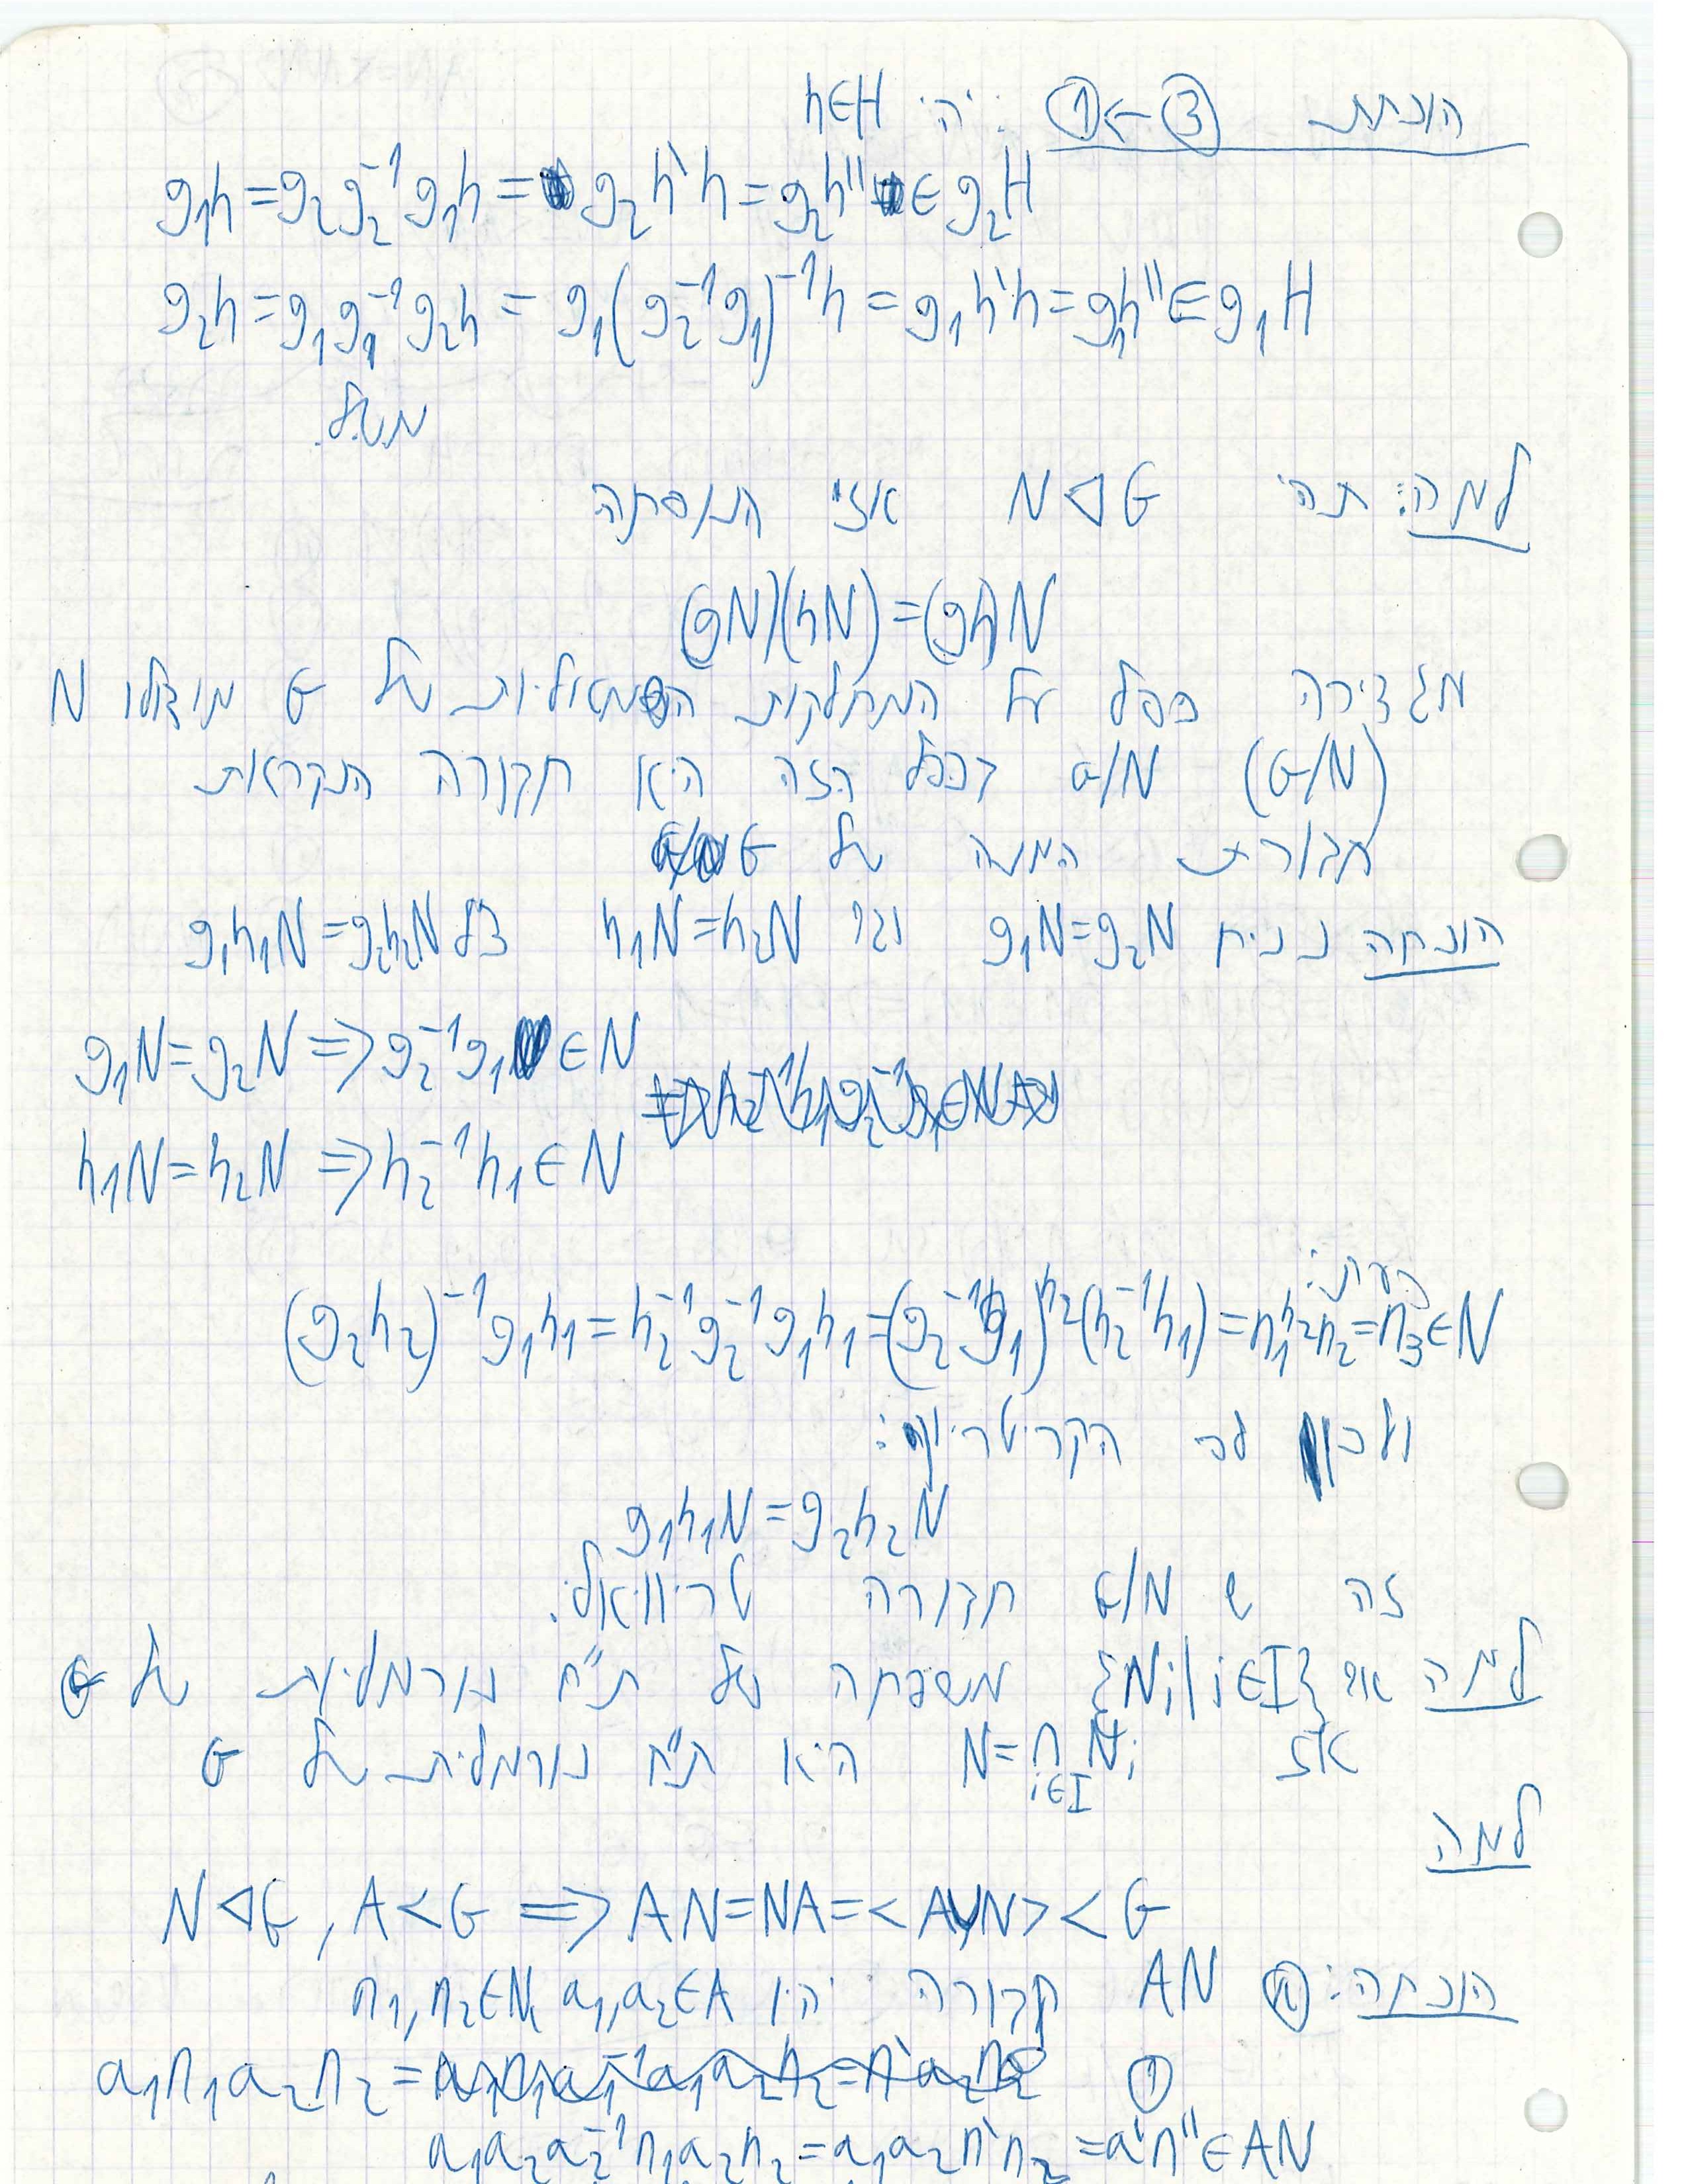 הוכחת ③→① : יהי h∈H
g₁h = g₂g₂⁻¹g₁h = g₂h'h = g₂h'' ∈ g₂H
g₂h = g₁g₁⁻¹g₂h = g₁(g₂⁻¹g₁)⁻¹h = g₁h'h = g₁h'' ∈ g₁H
מש"ל.
למה: תהי N⊲G אזי הנוסחה
(gN)(hN)=(gh)N
מגדירה כפל על המחלקות השמאליות של G מודולו N
(G/N) G/N בכפל הזה היא חבורה הנקראת
חבורת המנה של G
הוכחה נניח g₁N=g₂N וגם h₁N=h₂N צ"ל g₁h₁N=g₂h₂N
g₁N=g₂N => g₂⁻¹g₁∈N
h₁N=h₂N => h₂⁻¹h₁∈N
כעת:
(g₂h₂)⁻¹g₁h₁ = h₂⁻¹g₂⁻¹g₁h₁ = (g₂⁻¹g₁)^h₂(h₂⁻¹h₁) = n₁^h₂n₂ = n₃∈N
ולכן לפי הקריטריון:
g₁h₁N=g₂h₂N
זה ש G/N חבורה טריוויאלי.
למה אם {Nᵢ|i∈I} משפחה של ת"ח נורמליות של G
אז N=∩Nᵢ i∈I היא ת"ח נורמלית של G
למה
N⊲G, A<G => AN=NA=<A,N> < G
הוכחה: Ⓐ AN חבורה יהיו n₁,n₂∈N, a₁,a₂∈A
① a₁n₁a₂n₂=
a₁a₂a₂⁻¹n₁a₂n₂=a₁a₂n'n₂=a'n''∈AN